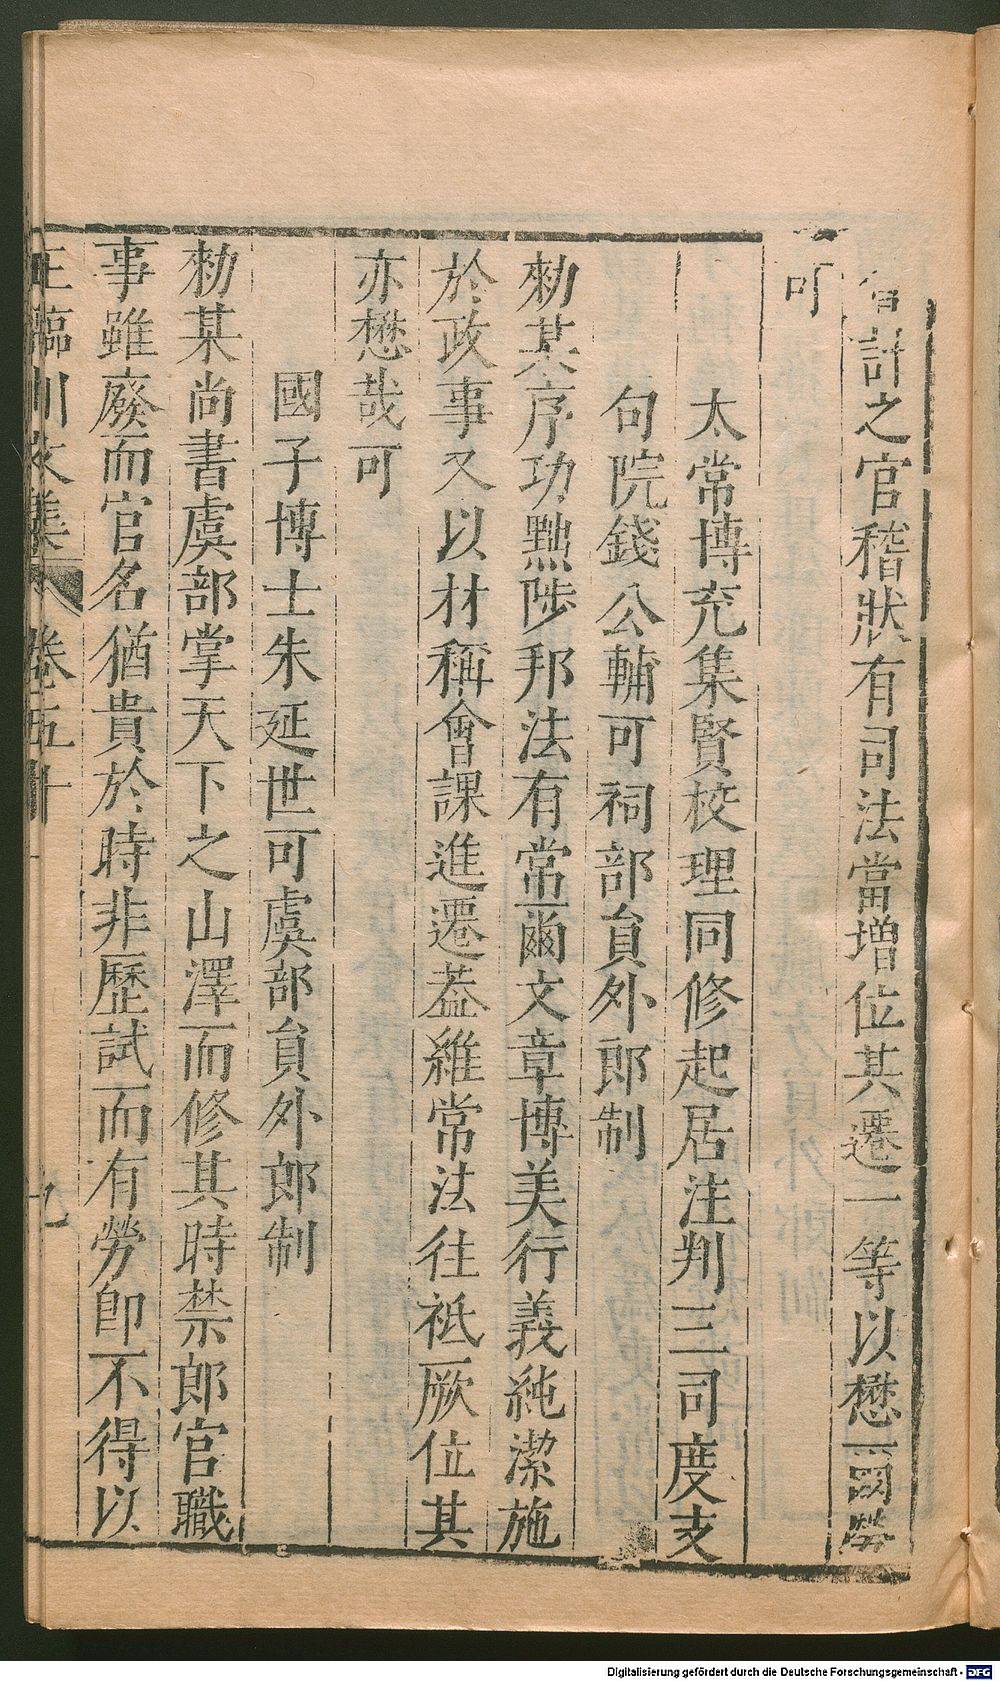 計之官稽狀有司法當增位其遷一等以懋爾勞
可
太常博充集賢校理同修起居注判三司度支
句院錢公輔可祠部員外郎制
勑某序功黜陟邦法有常爾文章博美行義純潔施
於政事又以材稱會課進遷葢維常法往祗厥位其
亦懋哉可
國子博士朱延世可虞部員外郎制
勑某尚書虞部掌天下之山澤而修其時禁郎官職
事雖廢而官名猶貴於時非歷試而有勞卽不得以
王臨川文集 卷五十 九
Digitalisierung gefördert durch die Deutsche Forschungsgemeinschaft - DFG